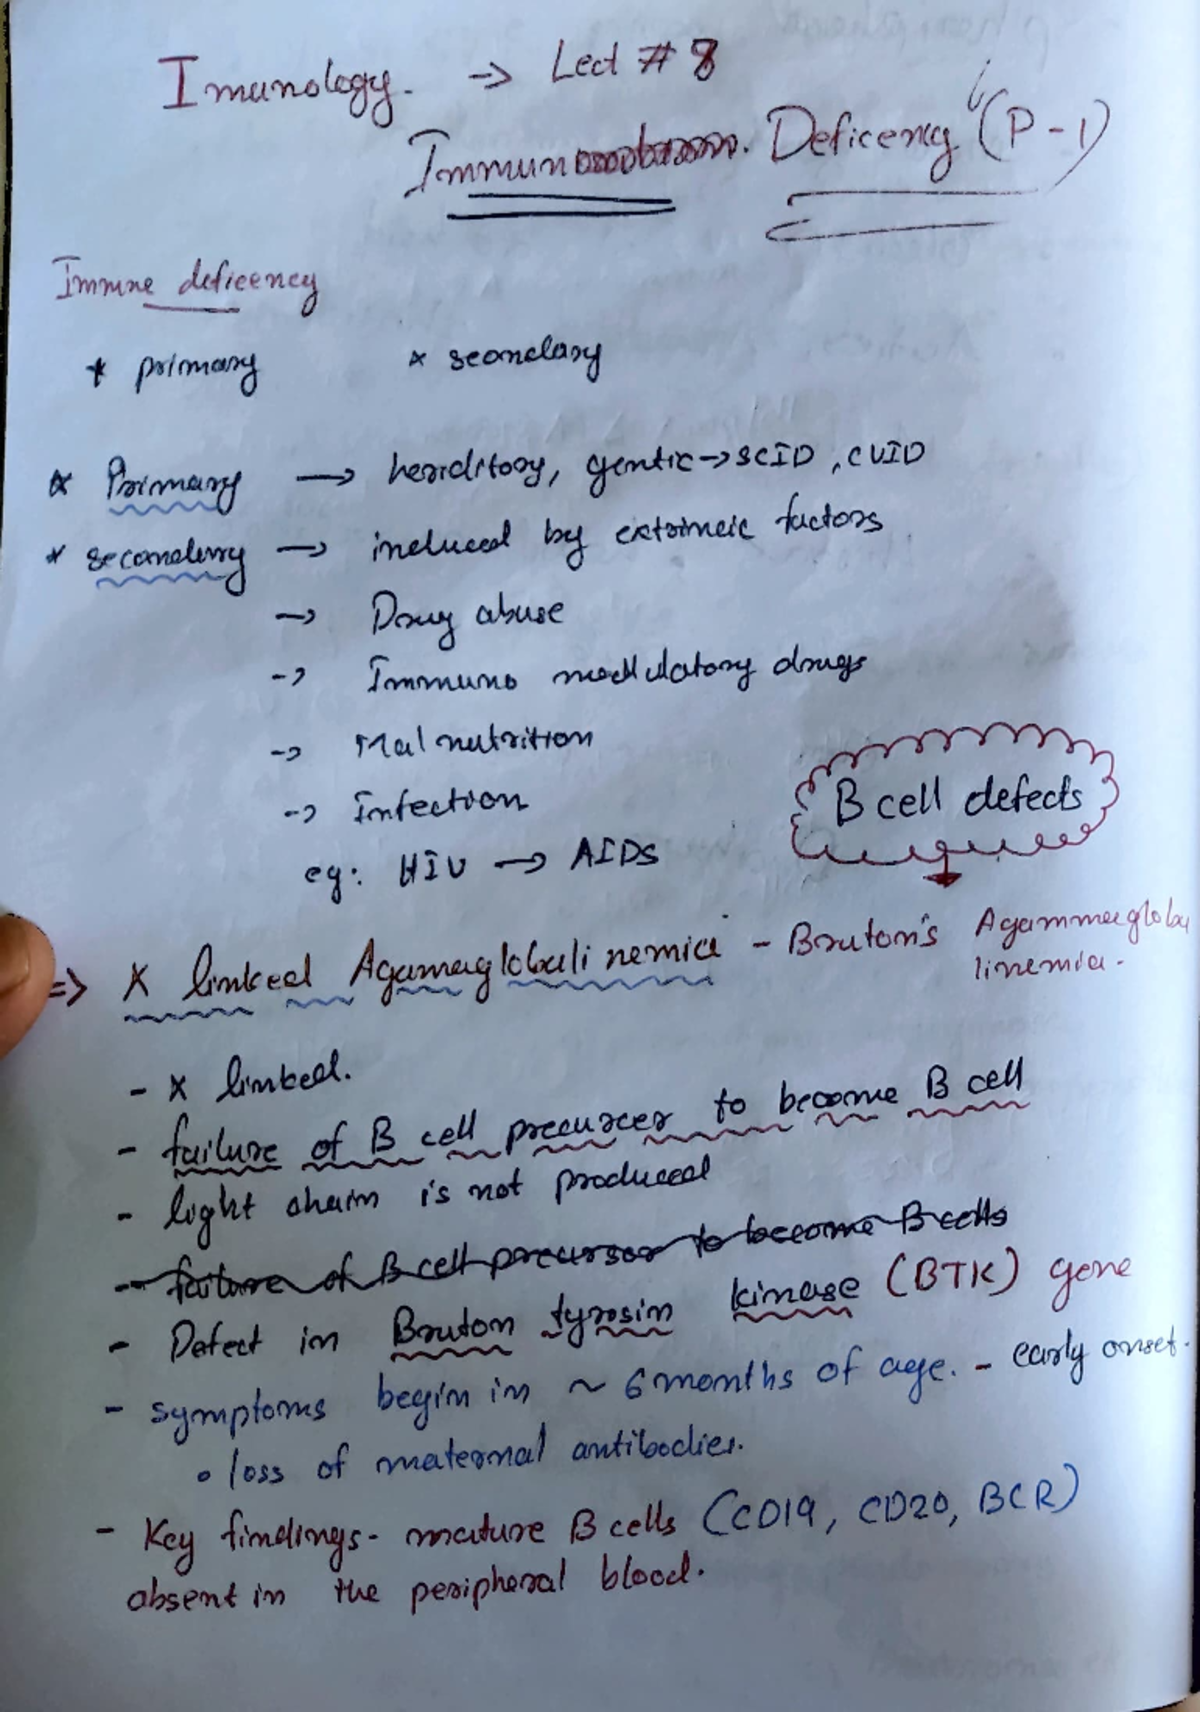 Imunology. → Lect # 8
Immuno Deficency (P-1)
Immune deficency
* primary * seondary
* Primary → heriditory, gentic → SCID, CVID
* secondary → induced by extrinsic factors
→ Drug abuse
→ Immuno modulatory drugs
→ Mal nutrition
→ Infection
eg: HIV → AIDS
B cell defects
⇒ X linked Agamaglobulinemia - Bruton's Agammaglobu
linemia.
- X linked.
- failure of B cell precurcer to become B cell
- light chain is not produced
- failure of B cell precursor to become B cells
- Defect in Bruton tyrosin kinase (BTK) gene
- symptoms begin in ~ 6 months of age. - early onset.
• loss of maternal antibodies.
- Key findings - mature B cells (CD19, CD20, BCR)
absent in the peripheral blood.